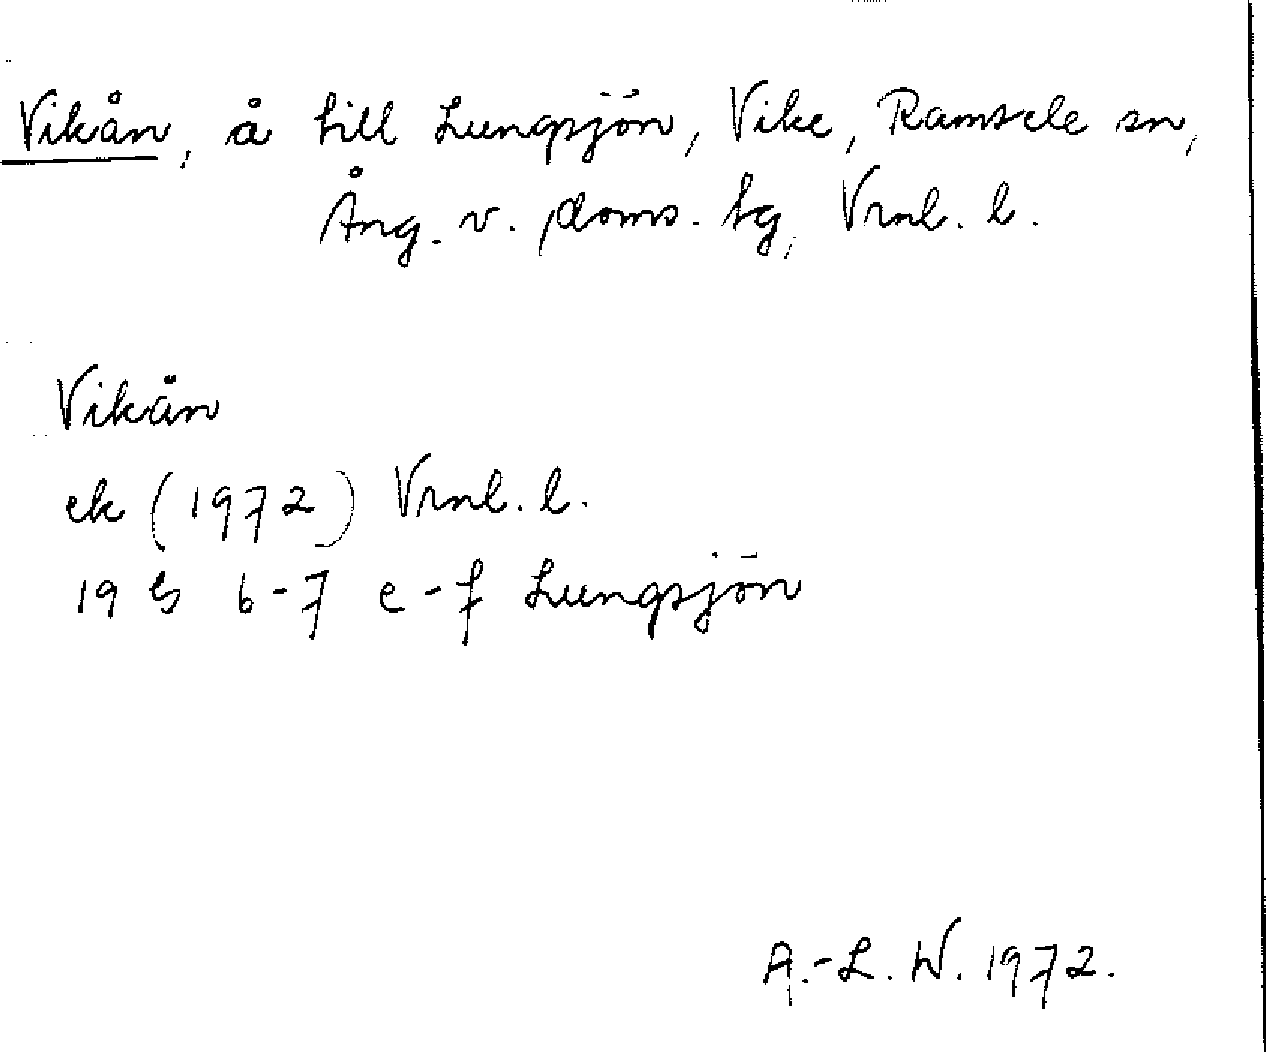 Vikån, å till Lungsjön, Vike, Ramsele sn,
Ång. v. doms. tg, Vrnl. l.
Vikån
ek (1972) Vrnl. l.
19 6-7 e-f Lungsjön
A.-L. W. 1972.